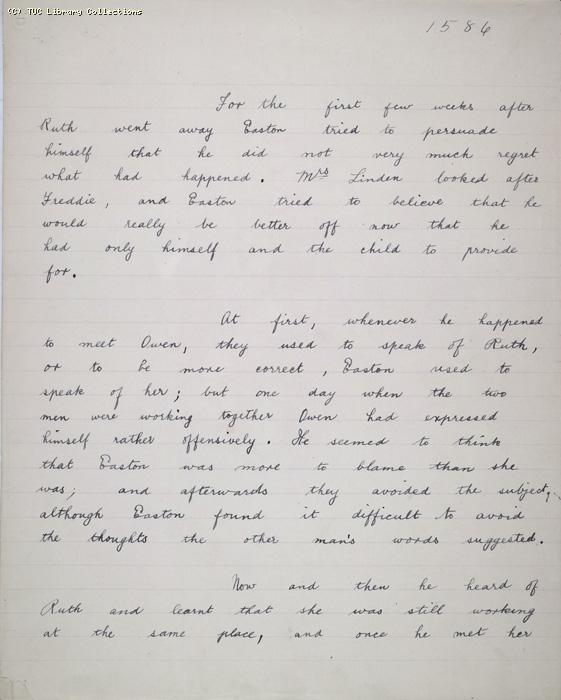 (C) TUC Library Collections
1586
For the first few weeks after
Ruth went away Easton tried to persuade
himself that he did not very much regret
what had happened. Mrs Linden looked after
Freddie, and Easton tried to believe that he
would really be better off now that he
had only himself and the child to provide
for.
At first, whenever he happened
to meet Owen, they used to speak of Ruth,
or to be more correct, Easton used to
speak of her; but one day when the two
men were working together Owen had expressed
himself rather offensively. He seemed to think
that Easton was more to blame than she
was; and afterwards they avoided the subject,
although Easton found it difficult to avoid
the thoughts the other man's words suggested.
Now and then he heard of
Ruth and learnt that she was still working
at the same place, and once he met her